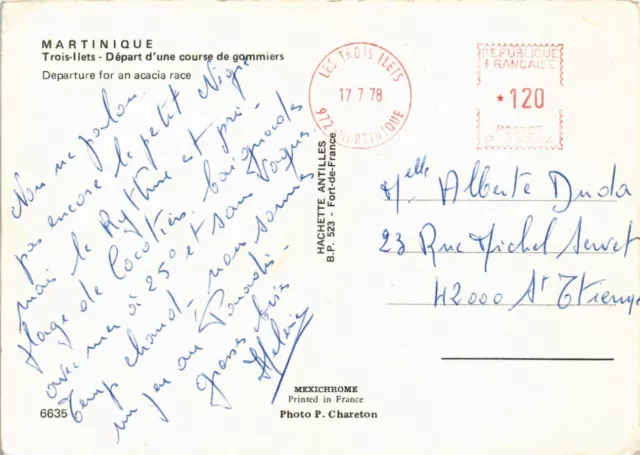 MARTINIQUE
Trois-Ilets - Départ d'une course de gommiers
Departure for an acacia race
Nous ne parlons
pas encore le petit Nègre
mais le Rythme est pris
Plage de Cocotiers, baignades
avec mer à 25° et sans vagues
Temps chaud - nous sommes
un peu au Paradis -
grosses bises
Hélène
6635
HACHETTE ANTILLES
B.P. 523 - Fort-de-France
MEXICHROME
Printed in France
Photo P. Chareton
LES TROIS ILETS
17 7 78
972 MARTINIQUE
REPUBLIQUE
FRANCAISE
* 120
POSTES
Melle Alberte Duda
23 Rue Michel Servet
42000 St Etienne